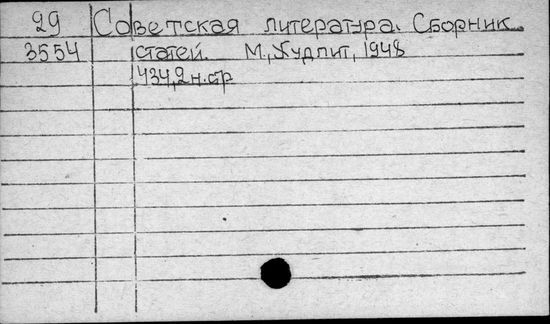 29 Советская литература. Сборник
3554 статей. М., Худлит, 1948
434, 2 н. ср